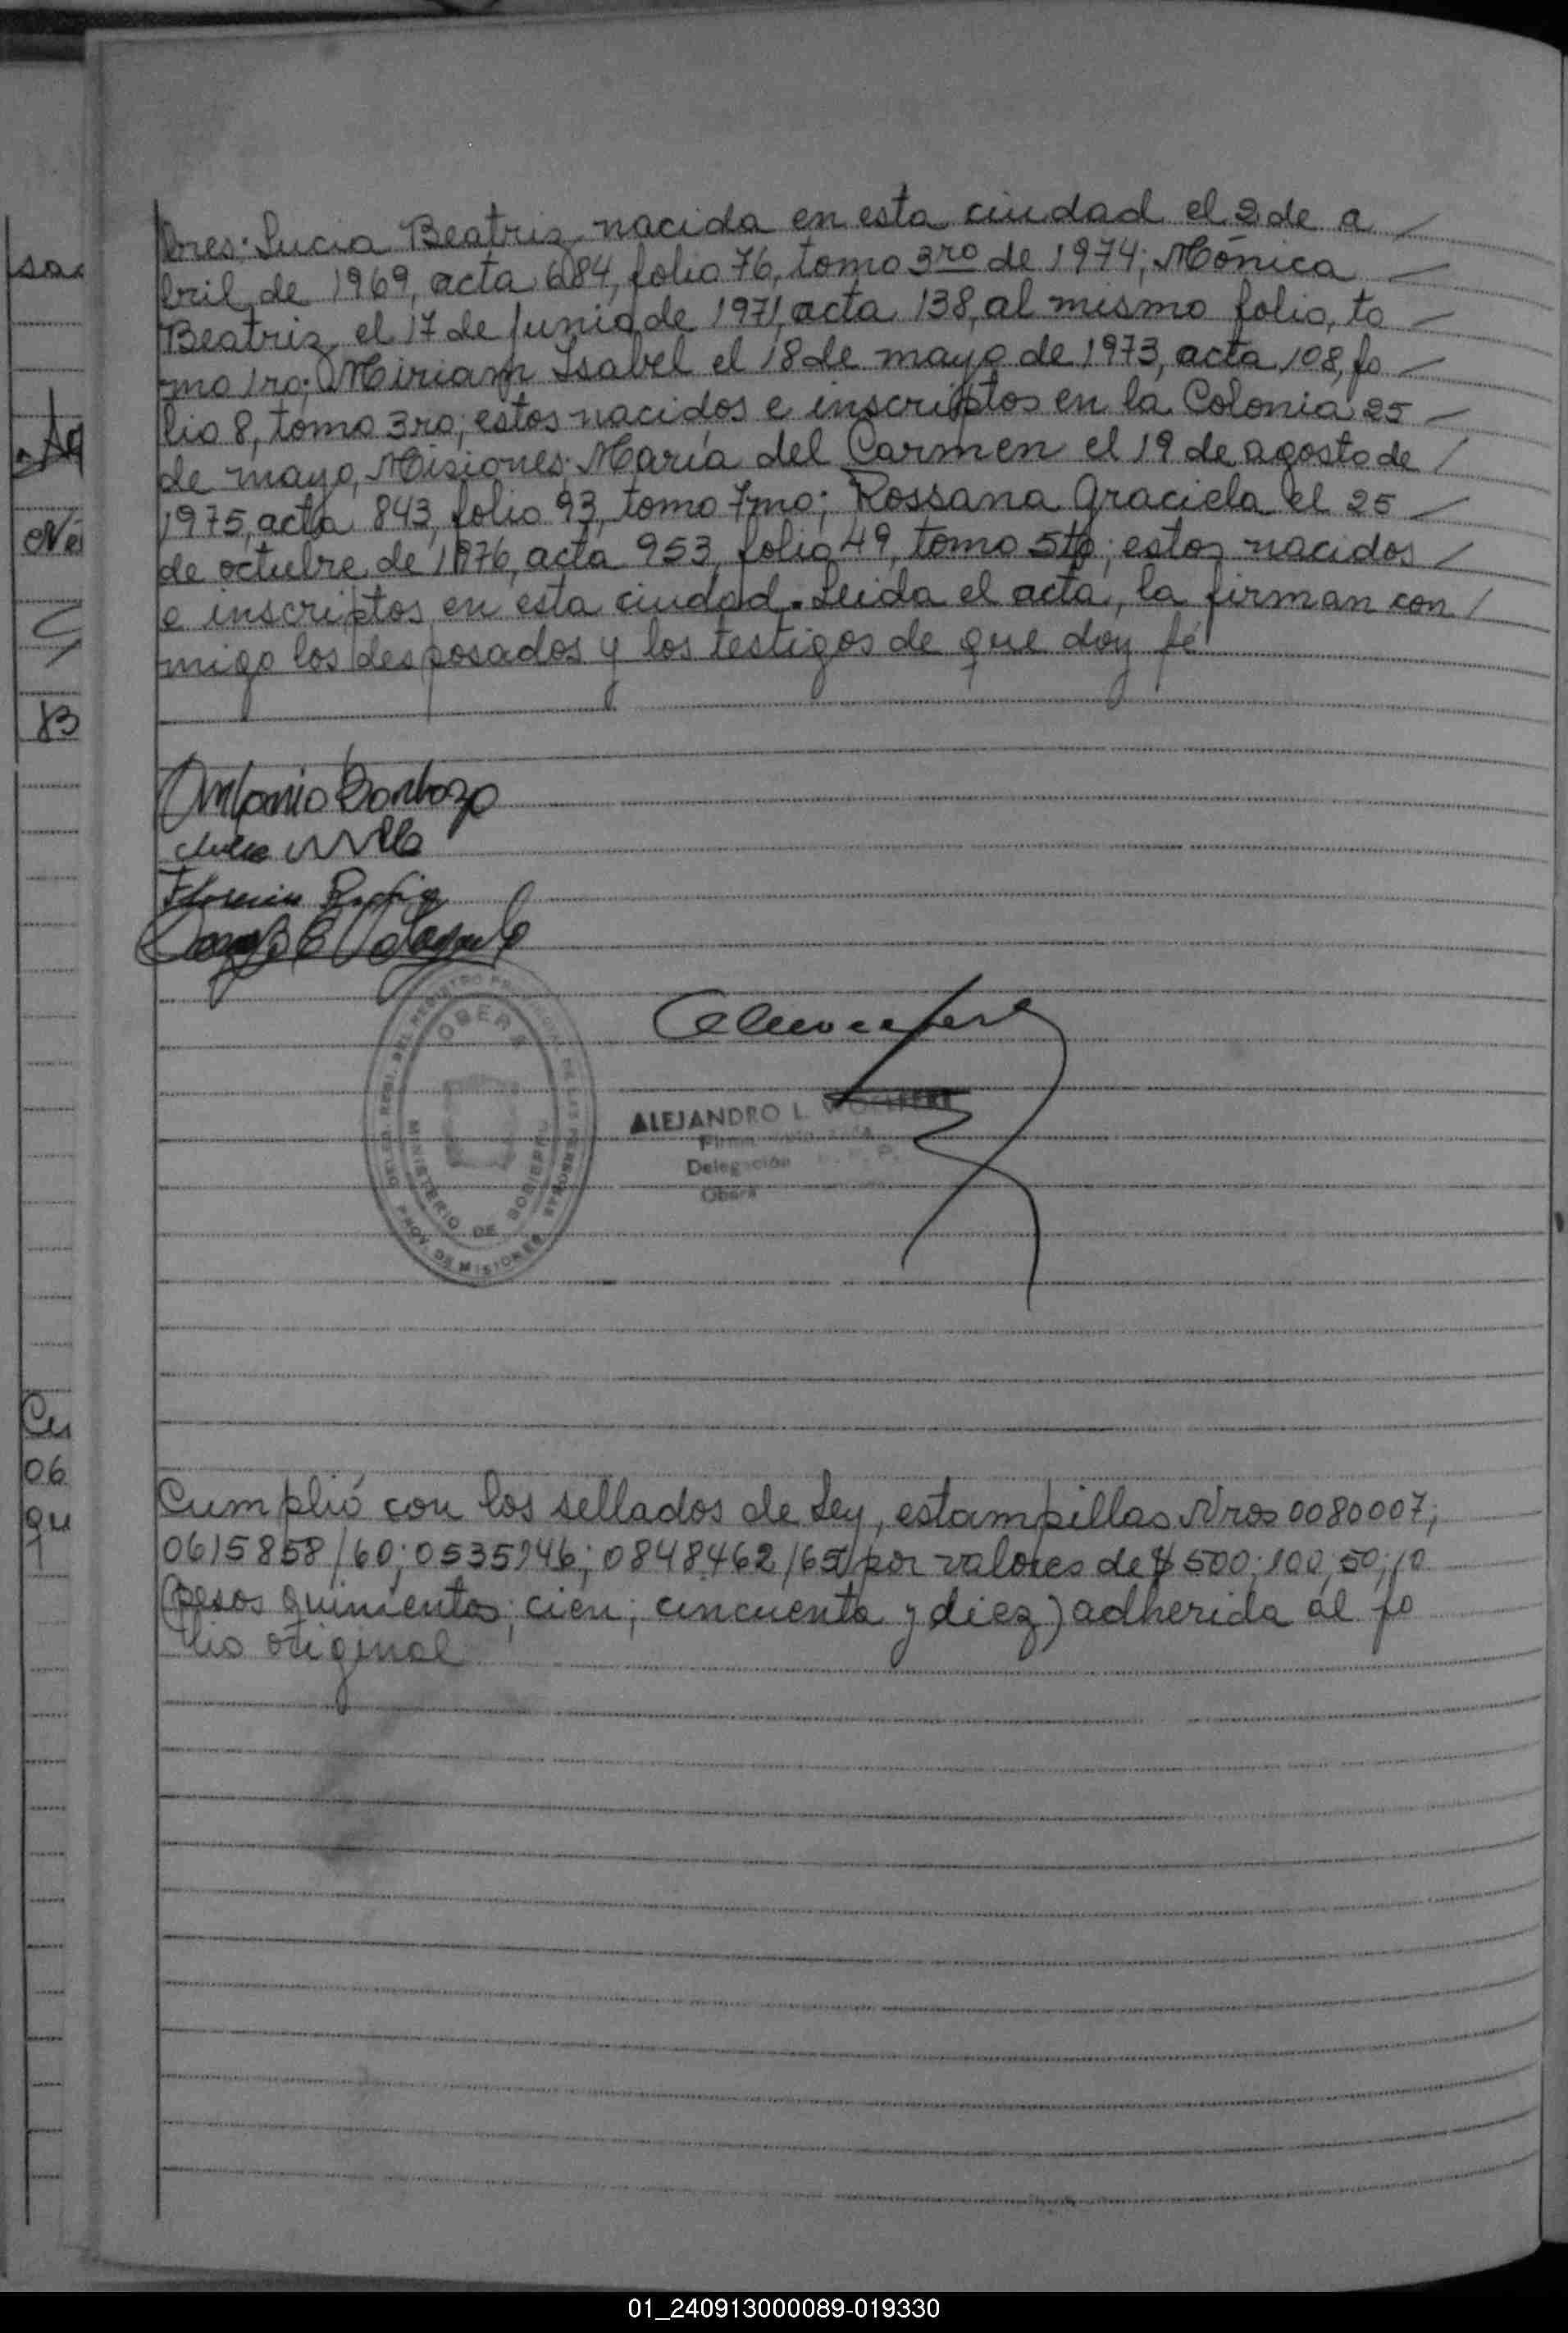 bres: Lucia Beatriz nacida en esta ciudad el 2 de a
bril de 1969, acta 684, folio 76, tomo 3ro de 1974; Mónica
Beatriz el 17 de Junio de 1971, acta 138, al mismo folio, to
mo 1ro; Miriam Isabel el 18 de mayo de 1973, acta 108, fo
lio 8, tomo 3ro; estos nacidos e inscriptos en la Colonia 25
de mayo, Misiones; María del Carmen el 19 de agosto de
1975, acta 843, folio 93, tomo 7mo; Rossana Graciela el 25
de octubre de 1976, acta 953, folio 49, tomo 5to; estos nacidos
e inscriptos en esta ciudad. Leida el acta, la firman con
migo los desposados y los testigos de que doy fé
Antonio Barboza
OBERA
MINISTERIO DE GOBIERNO
PROV. DE MISIONES
ALEJANDRO L.
Delegación
Oberá
Cumplió con los sellados de Ley, estampillas Nros 0080007;
0615858/60; 0535946; 0848462/65 por valores de $ 500; 100; 50; 10
(pesos quinientos; cien; cincuenta y diez) adherida al fo
lio original
01_240913000089-019330